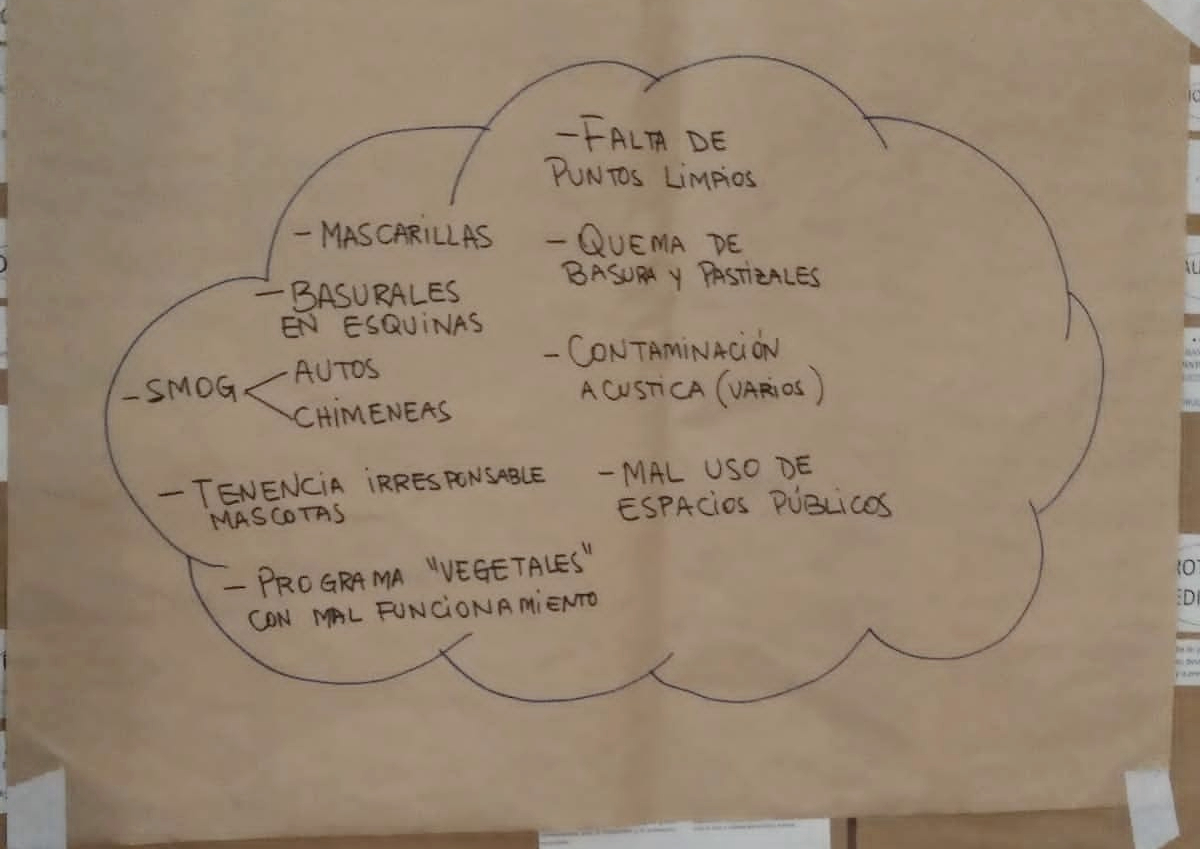 - MASCARILLAS
- BASURALES
EN ESQUINAS
- SMOG
AUTOS
CHIMENEAS
- TENENCIA IRRESPONSABLE
MASCOTAS
- PROGRAMA "VEGETALES"
CON MAL FUNCIONAMIENTO
- FALTA DE
PUNTOS LIMPIOS
- QUEMA DE
BASURA Y PASTIZALES
- CONTAMINACIÓN
ACUSTICA (VARIOS)
- MAL USO DE
ESPACIOS PÚBLICOS